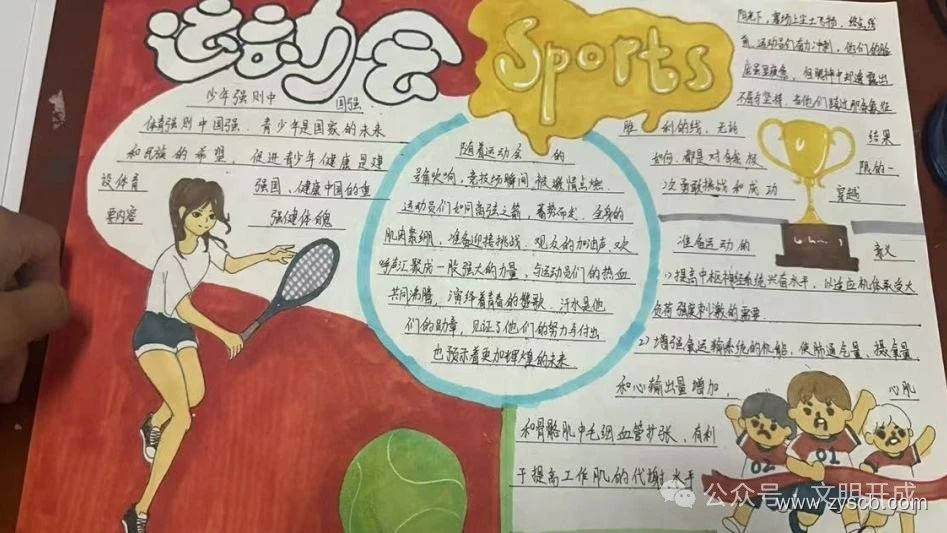 运动会
Sports
少年强则中国强
体育强则中国强。青少年是国家的未来
和民族的希望，促进青少年健康是建
设体育强国、健康中国的重
要内容 强健体魄
随着运动会的
号角吹响，竞技场瞬间被激情点燃.
运动员们如同离弦之箭，蓄势而发.全身的
肌肉紧绷，准备迎接挑战.观众的加油声、欢
呼声汇聚成一股强大的力量，与运动员们的热血
共同沸腾，演绎着青春的赞歌.汗水是他
们的勋章，见证了他们的努力与付出
也预示着更加辉煌的未来
阳光下，赛场上尘土飞扬，终点线
前，运动员们奋力冲刺，他们的脸
庞虽显疲惫，但眼神中却透露出
不屈与坚持，当他们跨过那条象征
胜利的线，无论结果
如何，都是对自我极限的一
次勇敢挑战和成功穿越
准备运动的意义
1)提高中枢神经系统兴奋水平，以适应机体承受大
负荷强度刺激的需要
2)增强氧运输系统的机能，使肺通气量、摄氧量
和心输出量增加，心肌
和骨骼肌中毛细血管扩张，有利
于提高工作肌的代谢水平
02
01
公众号·文明开成
www.zyscb.com